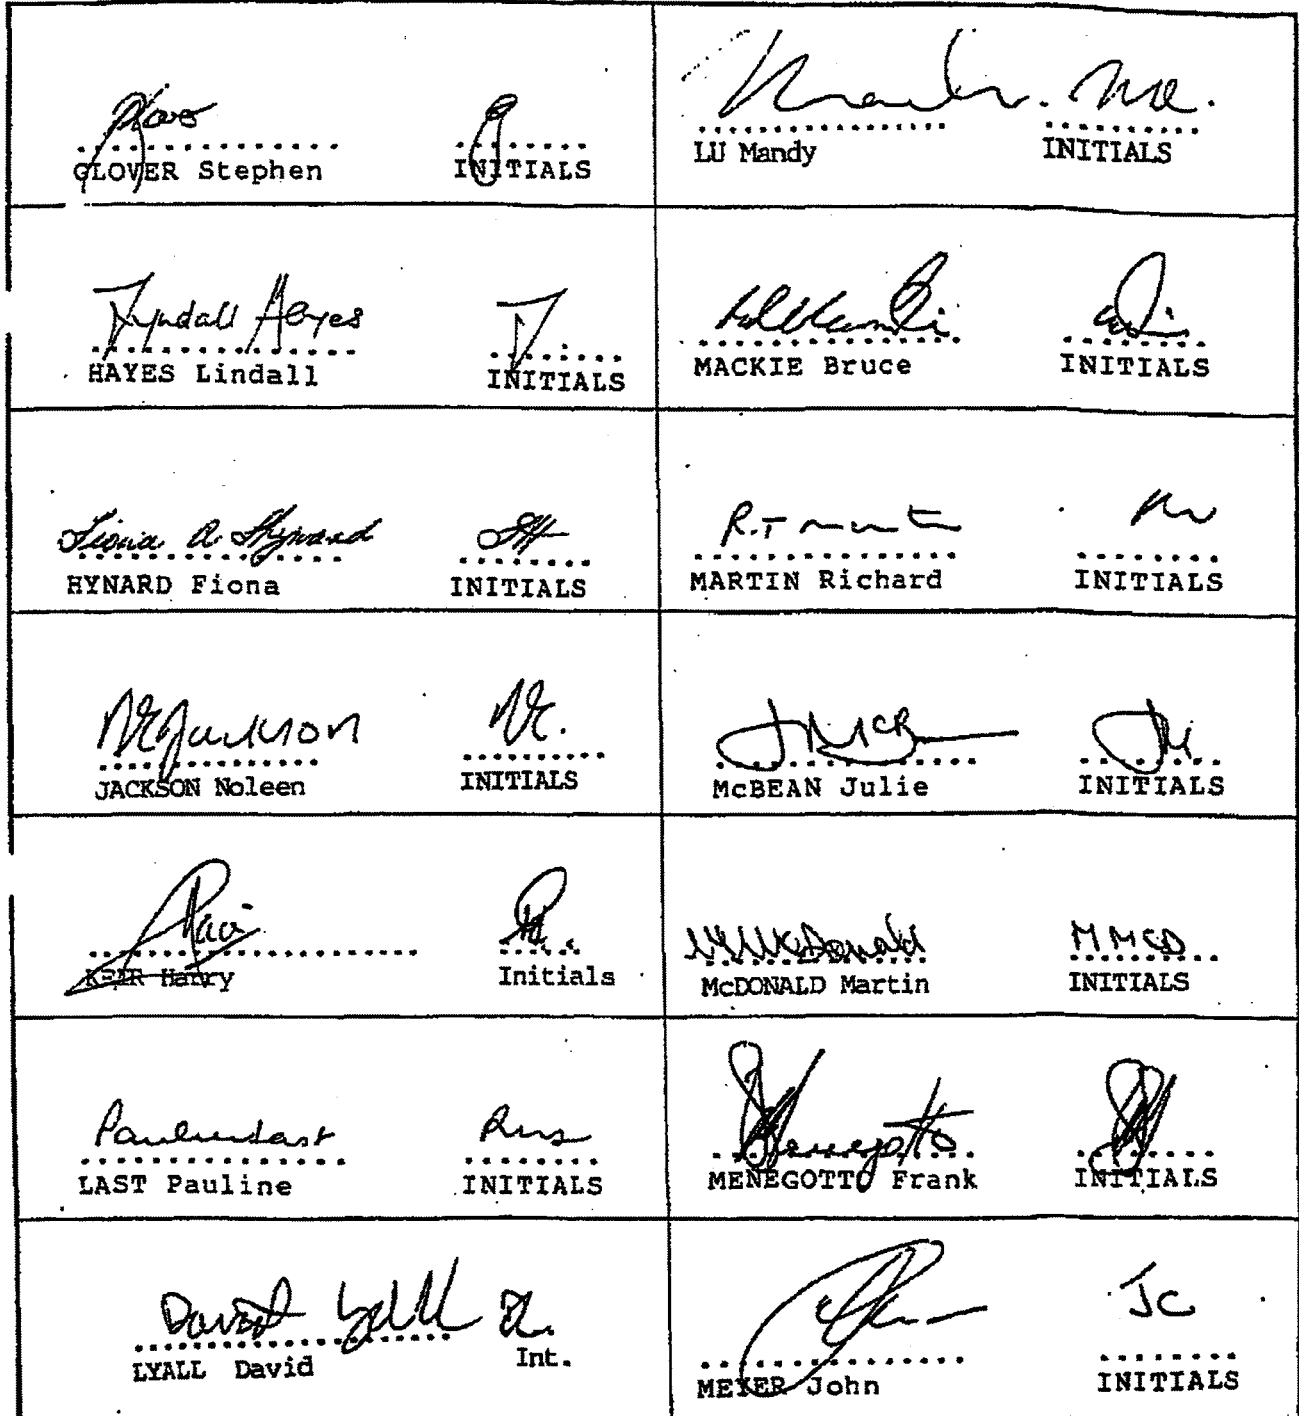 GLOVER Stephen INITIALS
LU Mandy INITIALS
Lyndall Hayes
HAYES Lindall INITIALS
MACKIE Bruce INITIALS
Fiona A Hynard
HYNARD Fiona INITIALS
R.T
MARTIN Richard INITIALS
NEJackson NE.
JACKSON Noleen INITIALS
J McB
McBEAN Julie INITIALS
KEIR Harry Initials
McDonald M McD
McDONALD Martin INITIALS
Pauline Last
LAST Pauline INITIALS
Menegotto
MENEGOTTO Frank INITIALS
David Lyall
LYALL David Int.
JC
MEYER John INITIALS